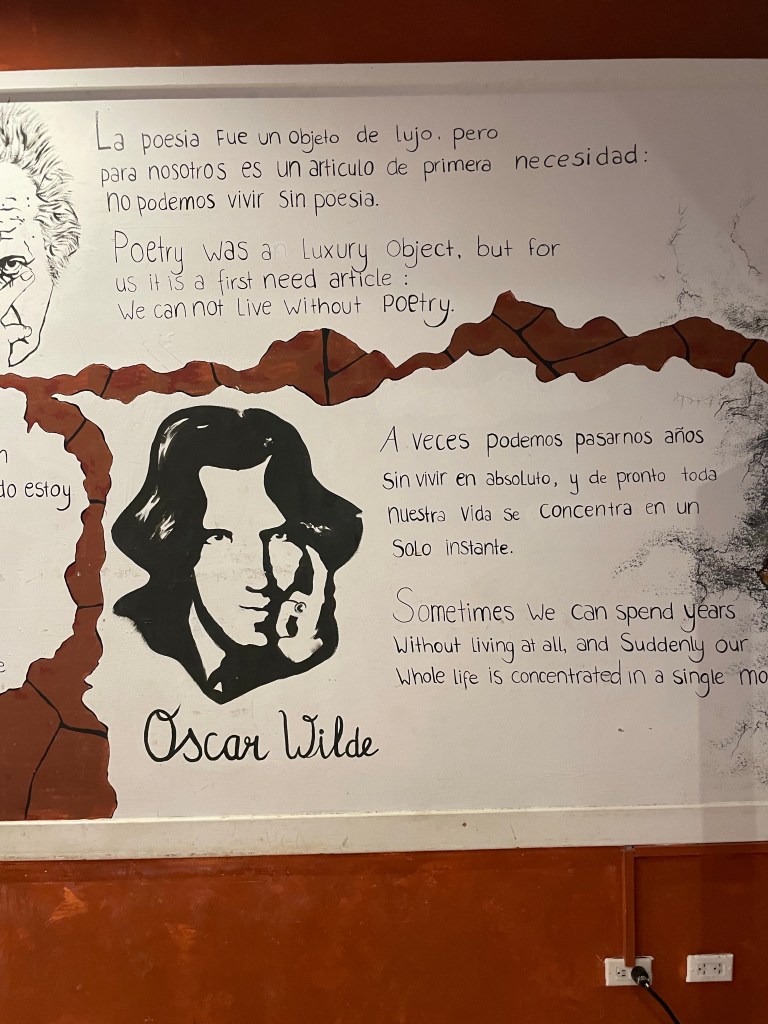 La poesia fue un objeto de lujo. pero
para nosotros es un articulo de primera necesidad:
no podemos vivir sin poesia.
Poetry was an Luxury Object, but for
us it is a first need article:
We can not Live Without Poetry.
do estoy
A veces podemos pasarnos años
sin vivir en absoluto, y de pronto toda
nuestra vida se concentra en un
solo instante.
Sometimes We can spend years
Without living at all, and Suddenly our
Whole life is concentrated in a single mo
Oscar Wilde